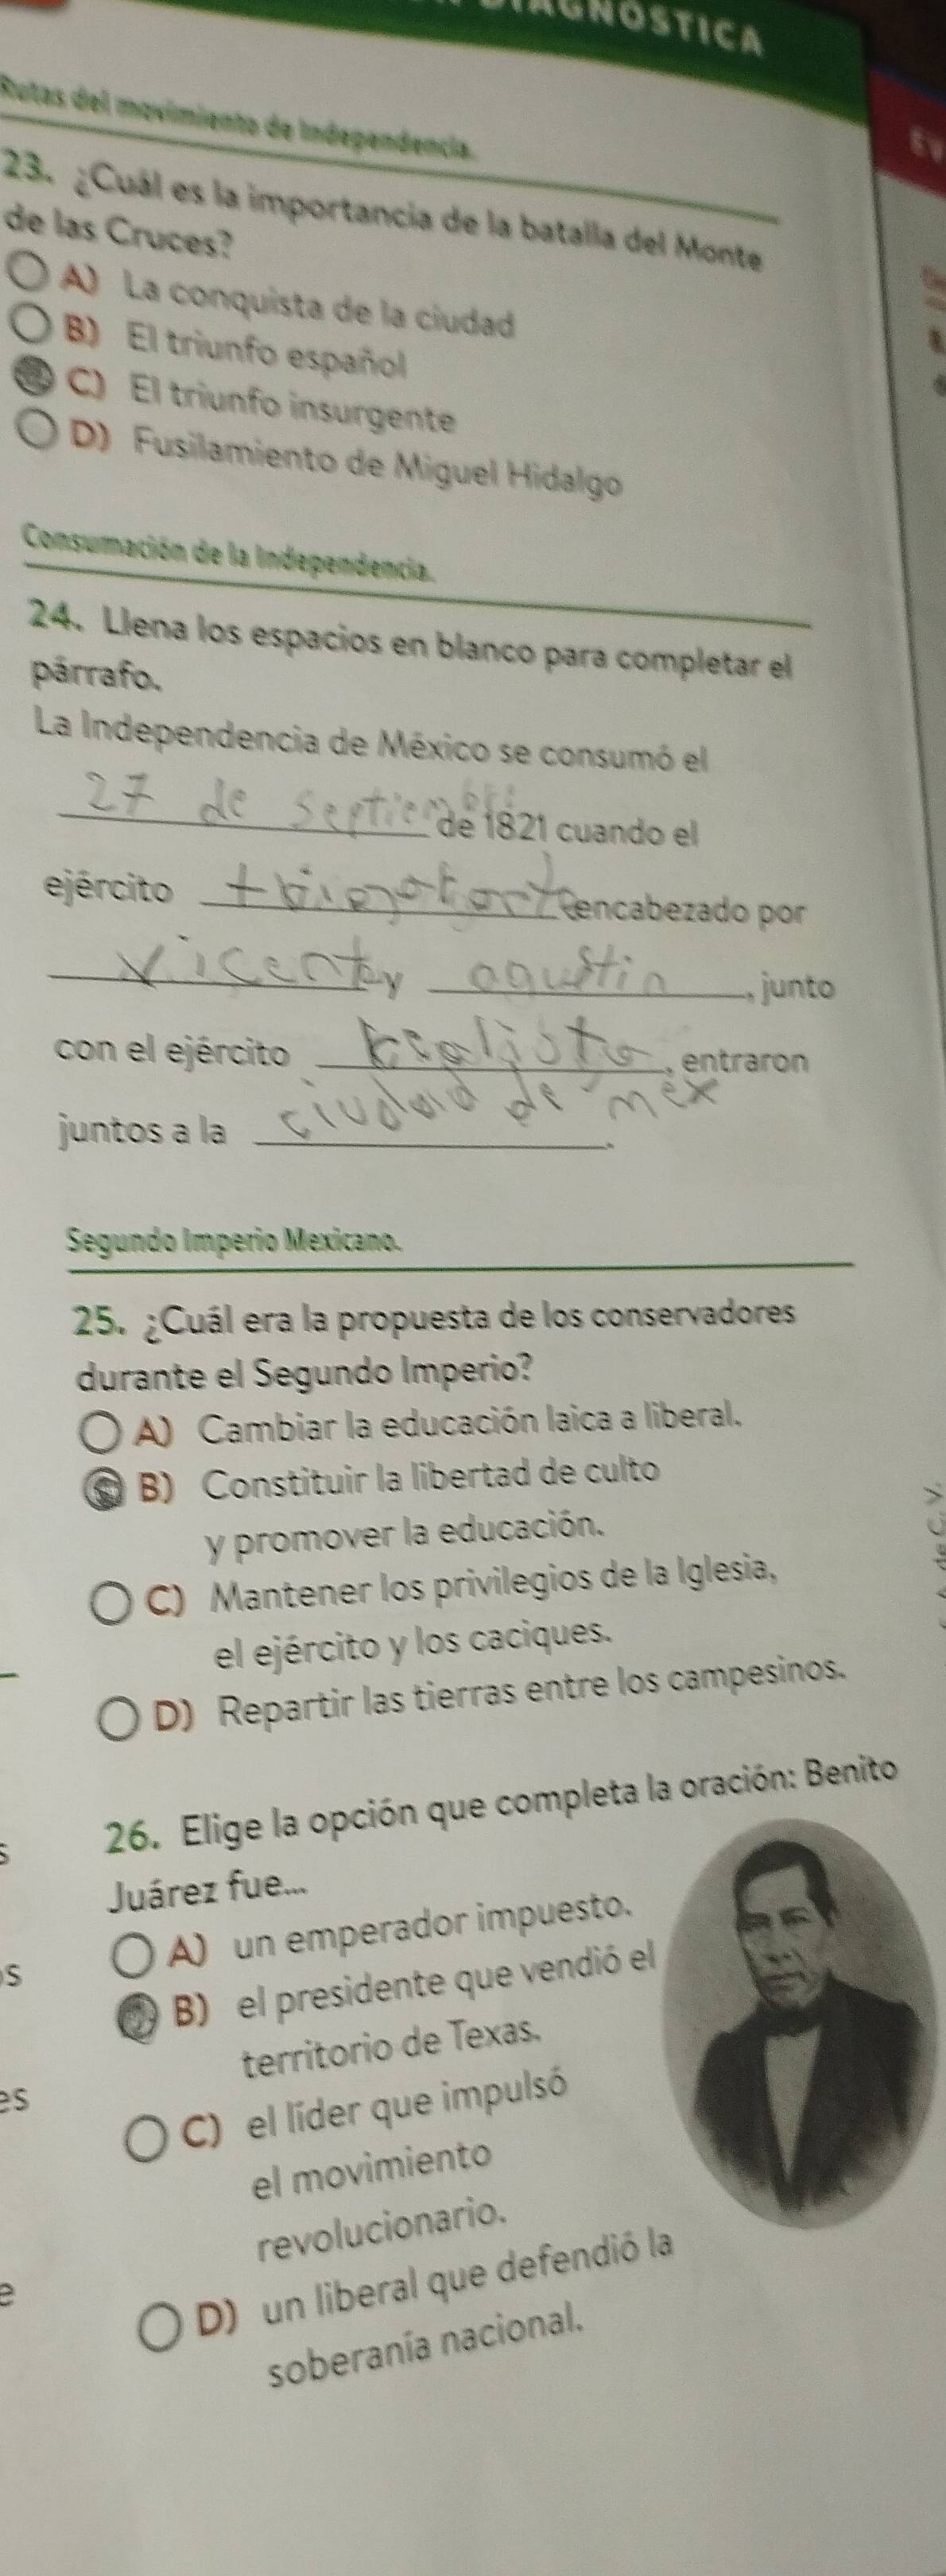 DIAGNÓSTICA
Rutas del movimiento de Independencia.
23. ¿Cuál es la importancia de la batalla del Monte
de las Cruces?
A) La conquista de la ciudad
B) El triunfo español
C) El triunfo insurgente
D) Fusilamiento de Miguel Hidalgo
Consumación de la Independencia.
24. Llena los espacios en blanco para completar el
párrafo.
La Independencia de México se consumó el
27 de septiembre de 1821 cuando el
ejército encabezado por
Vicente y agustin, junto
con el ejército realista, entraron
juntos a la ciudad de mex.
Segundo Imperio Mexicano.
25. ¿Cuál era la propuesta de los conservadores
durante el Segundo Imperio?
A) Cambiar la educación laica a liberal.
B) Constituir la libertad de culto
y promover la educación.
C) Mantener los privilegios de la Iglesia,
el ejército y los caciques.
D) Repartir las tierras entre los campesinos.
26. Elige la opción que completa la oración: Benito
Juárez fue...
A) un emperador impuesto.
B) el presidente que vendió el
territorio de Texas.
C) el líder que impulsó
el movimiento
revolucionario.
D) un liberal que defendió la
soberanía nacional.